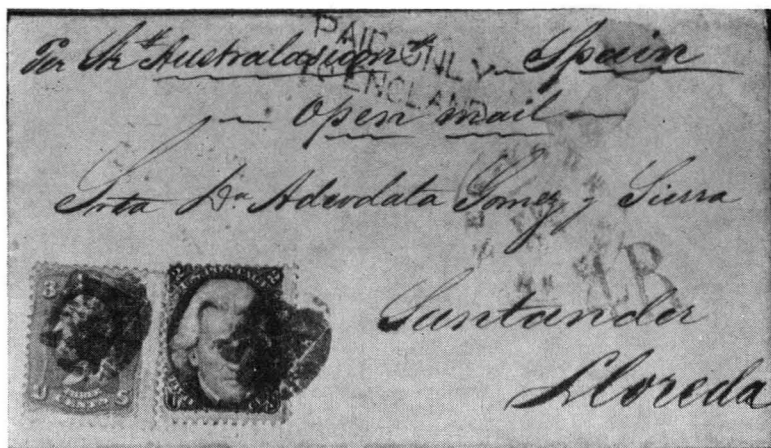 Per Str Australasian Spain
PAID ONLY
TO ENGLAND
Open mail
Srta Da Adeodata Gomez y Sierra
4R
Santander
Lloreda
3
U S
CENTS